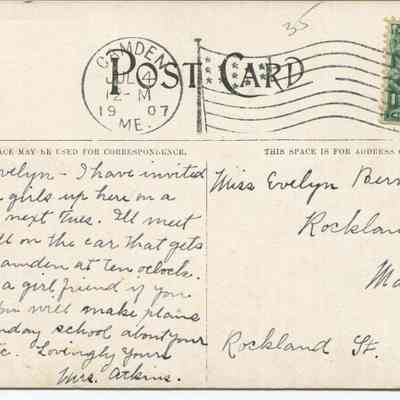 35
CAMDEN
JUL 4
12-M
19 07
ME.
POST CARD
ACE MAY BE USED FOR CORRESPONDENCE.
THIS SPACE IS FOR ADDRESS O
velyn - I have invited
girls up here on a
next Tues. I'll meet
ll on the car that gets
amden at ten oclock.
a girl friend if you
ou will make plans
nday school about your
c. Lovingly yours
Mrs. Atkins.
Miss Evelyn Ber
Rockland
Ma
Rockland St.